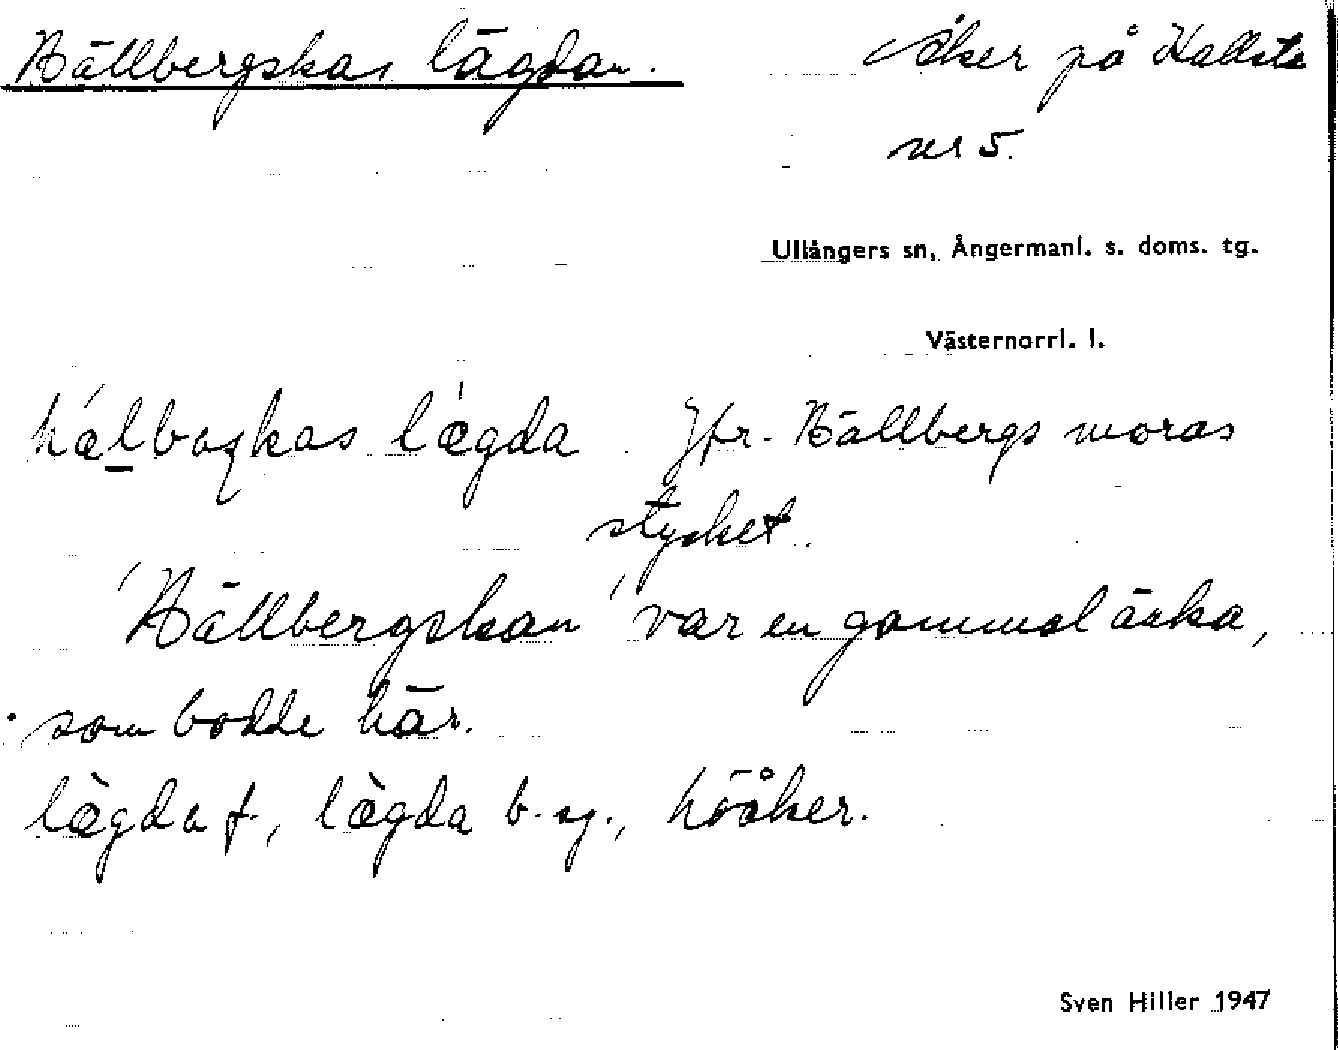 Hällbergskas lägdan.
Åker på Kallsta
nr 5.
Ullångers sn, Ångermanl. s. doms. tg.
Västernorrl. l.
hæ̀lboʂkas lǽgda. Jfr. Hällbergs moras
stycket.
'Hällbergskan' var en gammal änka,
som bodde här.
læ̀gda f., læ̀gda b. sg., höåker.
Sven Hiller 1947